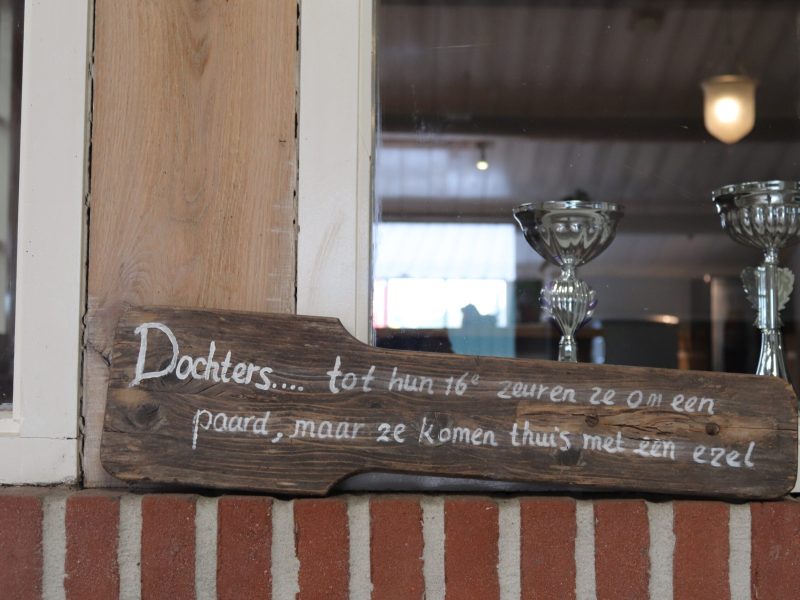 Dochters.... tot hun 16e zeuren ze om een
paard, maar ze komen thuis met één ezel